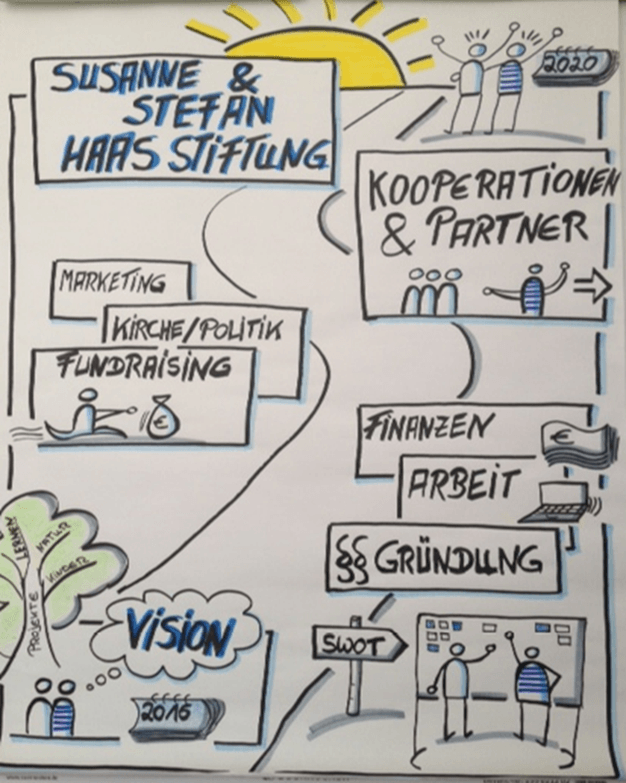 SUSANNE &
STEFAN
HAAS STIFTUNG
2020
KOOPERATIONEN
& PARTNER
MARKETING
KIRCHE/POLITIK
FUNDRAISING
€
FINANZEN
€
ARBEIT
§§ GRÜNDUNG
LERNEN
NATUR
KINDER
PROJEKTE
VISION
2016
SWOT